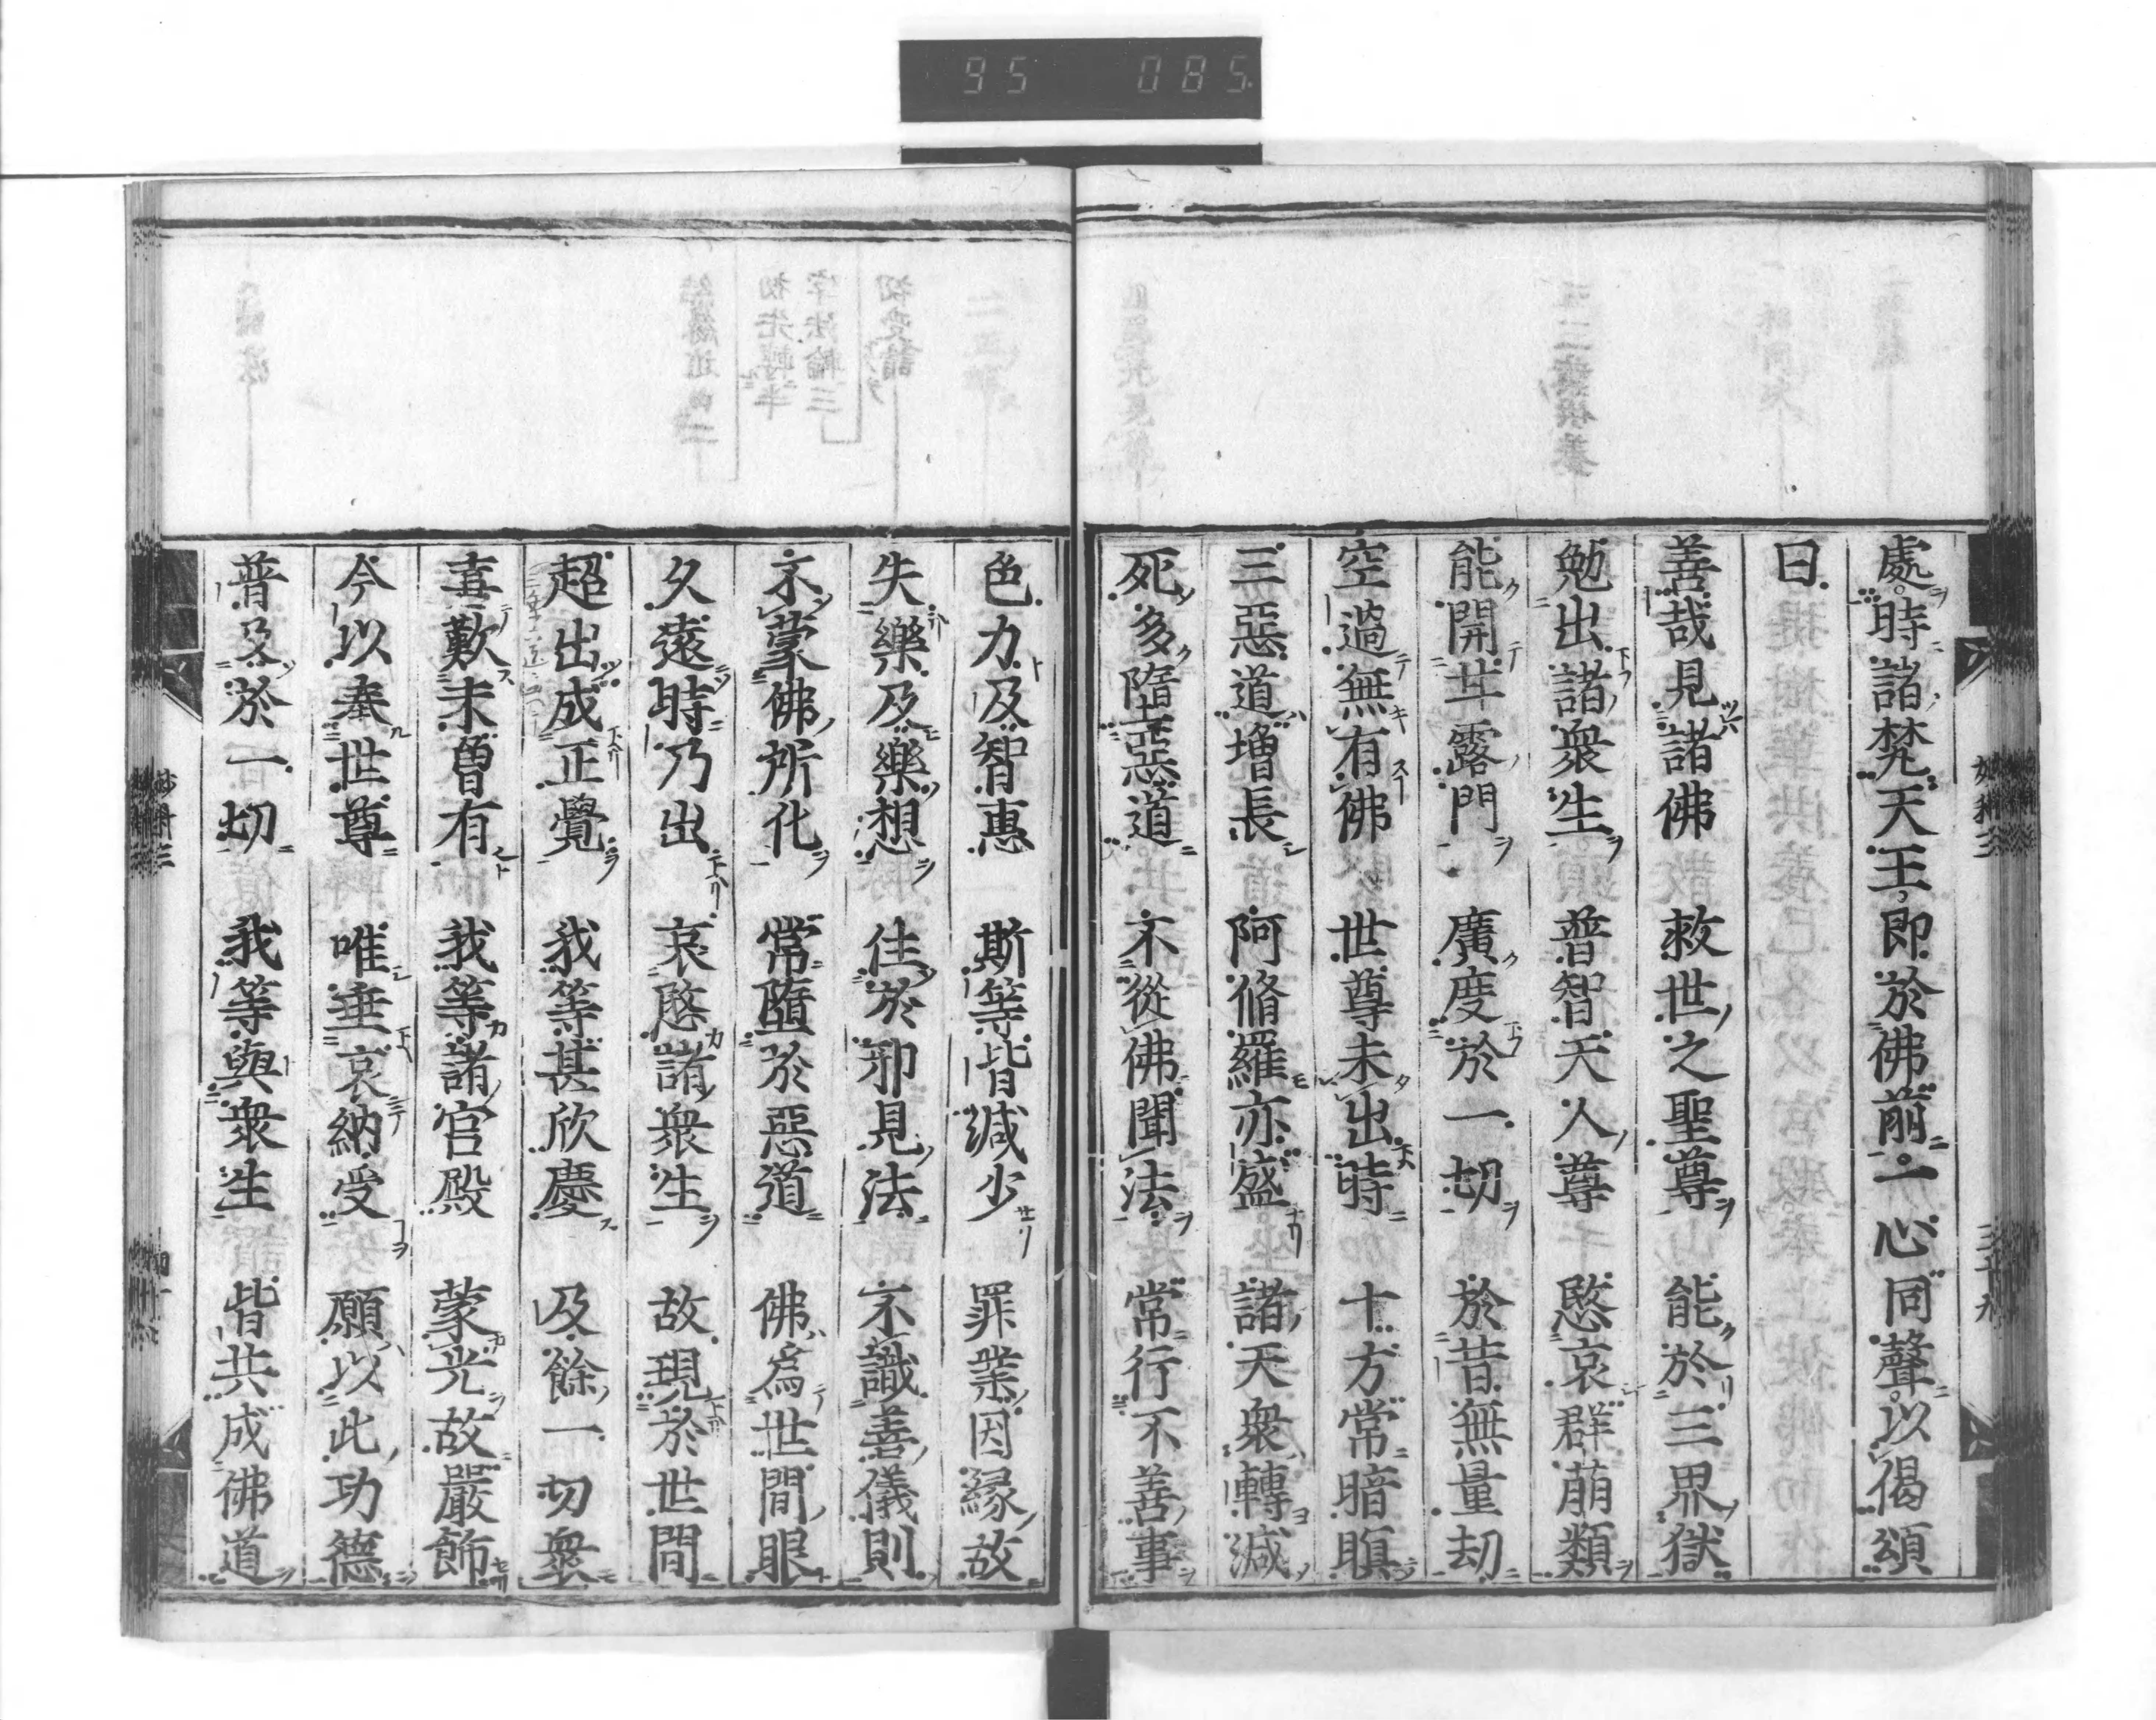 95 085
處時諸梵天王即於佛前一心同聲以偈頌
曰
善哉見諸佛 救世之聖尊 能於三界獄
勉出諸衆生 普智天人尊 愍哀群萠類
能開甘露門 廣度於一切 於昔無量劫
空過無有佛 世尊未出時 十方常暗瞑
三惡道增長 阿脩羅亦盛 諸天衆轉減
死多墮惡道 不從佛聞法 常行不善事
色力及智惠 斯等皆減少 罪業因緣故
失樂及樂想 住於邪見法 不識善儀則
不蒙佛所化 常墮於惡道 佛爲世間眼
久遠時乃出 哀愍諸衆生 故現於世間
超出成正覺 我等甚欣慶 及餘一切衆
喜歎未曾有 我等諸宮殿 蒙光故嚴飾
今以奉世尊 唯垂哀納受 願以此功德
普及於一切 我等與衆生 皆共成佛道